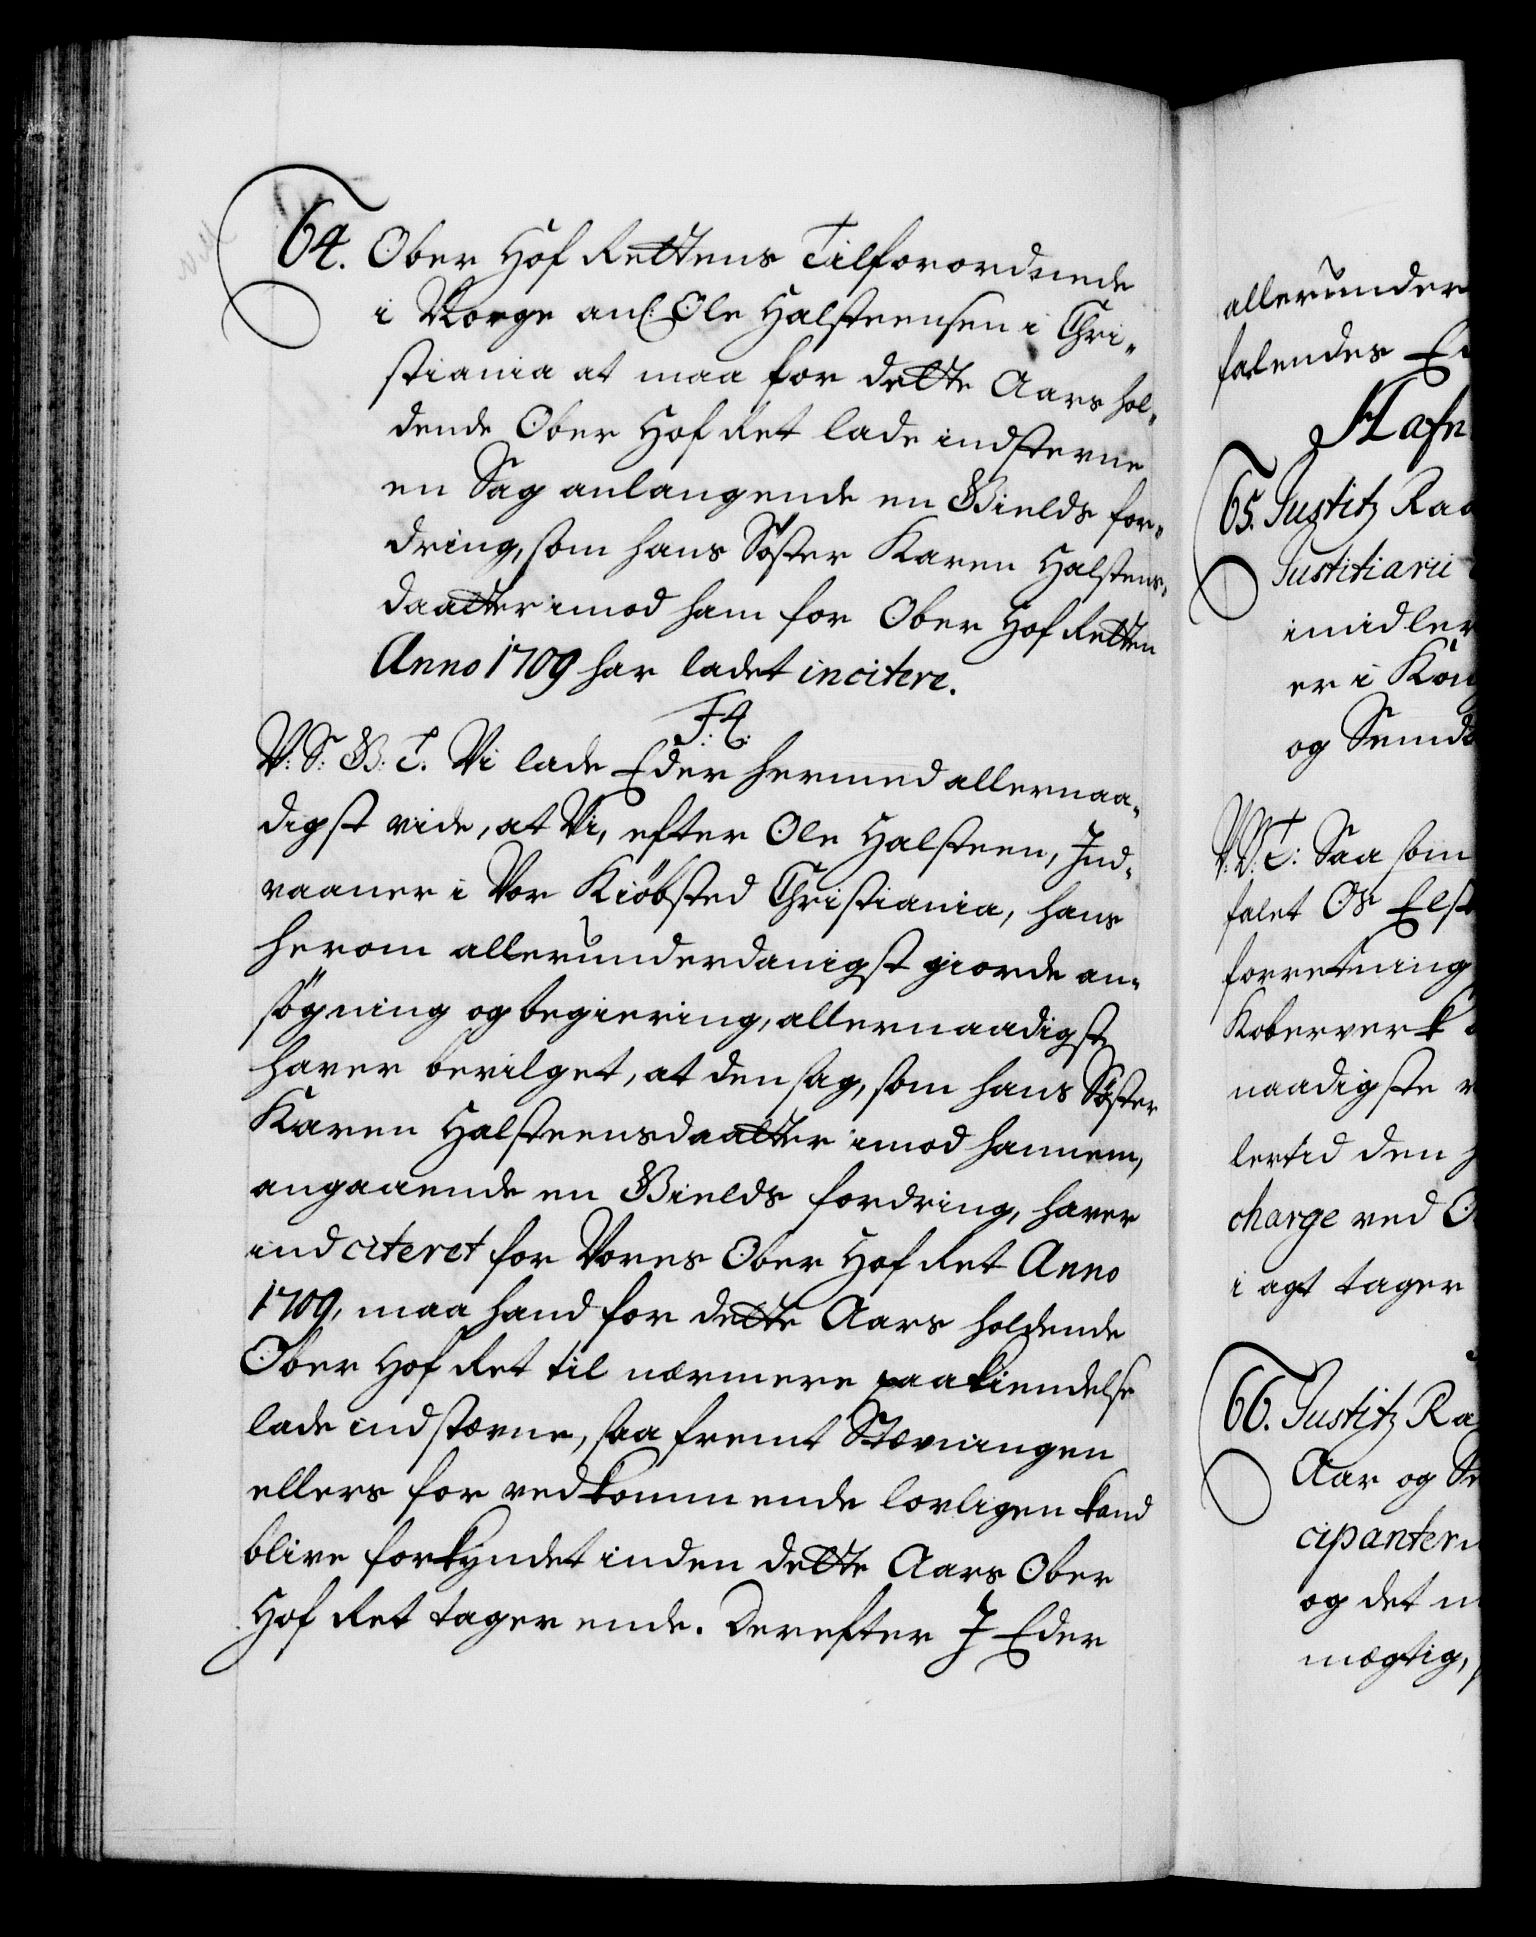 64. Ober Hof Rettens Tilforordnede
i Norge anl: Ole Halsteensen i Chri-
stiania at maa for dette Aars hol-
dende Ober Hof Ret lade indsterne
en Sag anlangende en Gields for-
dring, som hans Söster Karen Halstens-
daatter imod ham for Ober Hof Retten
Anno 1709 har ladet incitere.
F. 4.
V: S: G: T. Vi lade Eder hermed allernaa-
digst vide, at Vi, efter Ole Halsteen, Ind-
vaaner i Vor Kiöbsted Christiania, hans
herom allerunderdanigst giorde an-
sögning og begiering, allernaadigst
haver bevilget, at den sag, som hans Söster
Karen Halsteensdaatter imod hannem,
angaaende en Gields fordring, haver
indciteret for Vores Ober Hof Ret Anno
1709, maa hand for dette Aars holdende
Ober Hof Ret til nærmere paakiendelse
lade indstævne, saa fremt Stævningen
ellers for vedkommende lovligen kand
blive forkyndet inden dette Aars Ober
Hof Ret tager ende. Derefter I Eder
allerunder
falendes
Hafn
65. Justitz Raa
Justitiarii
imidler
er i Kon
og Semd
V. G. T: Saa som
falet Os Elst
forretning
Koberverk
naadigste
lertid den
charge ved
i agt tager
66. Justitz Ra
Aar og
cipantern
og det
mægtig,